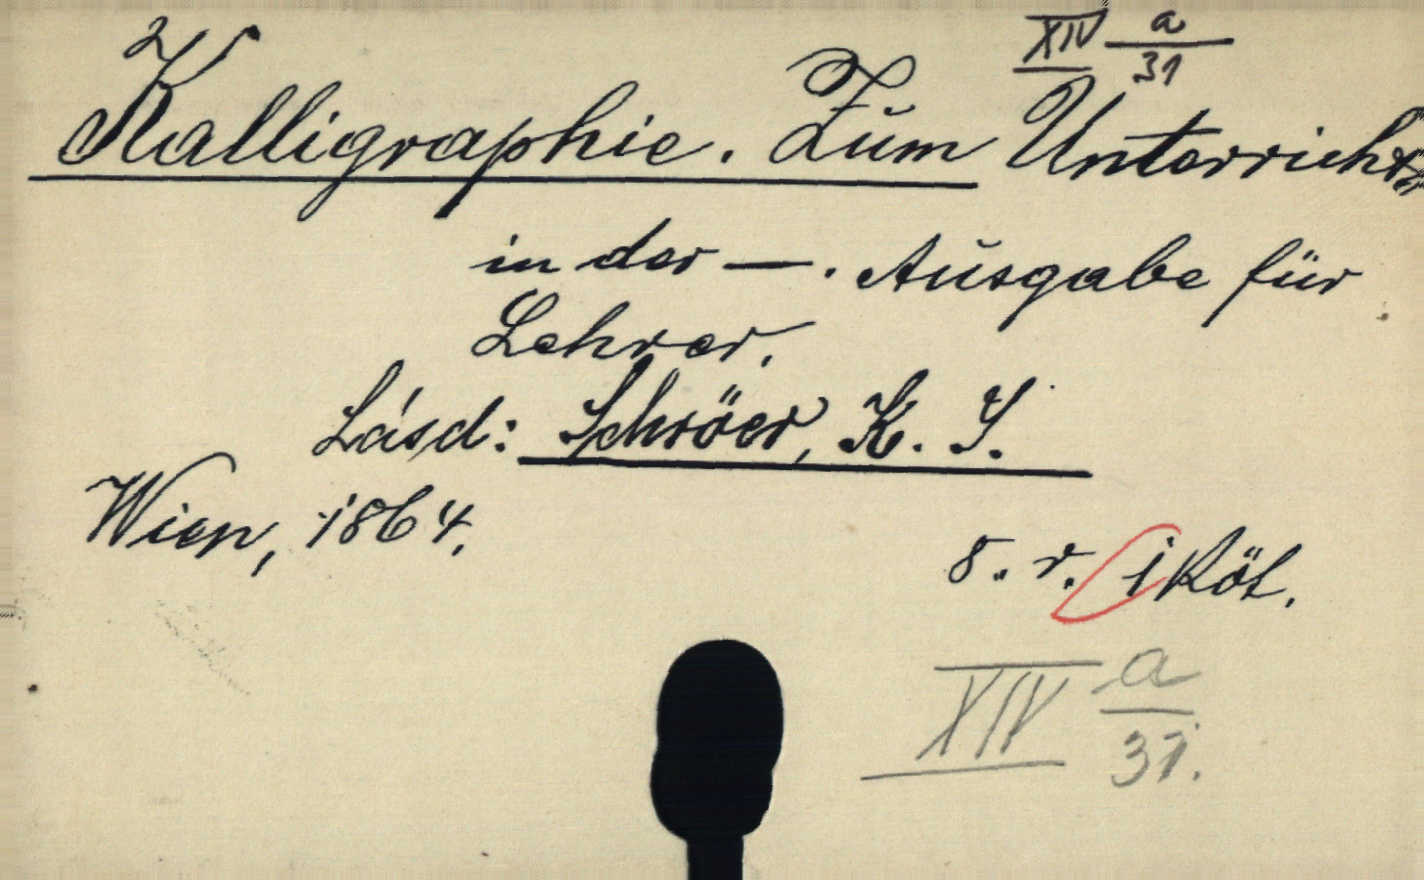 XIV a/31
2
Kalligraphie. Zŭm Unterricht
in der —. Aŭsgabe für
Lehrer.
Lásd: Schröer, K. I.
Wien, 1864.
8. r. 1 Köt.
XIV a/31.